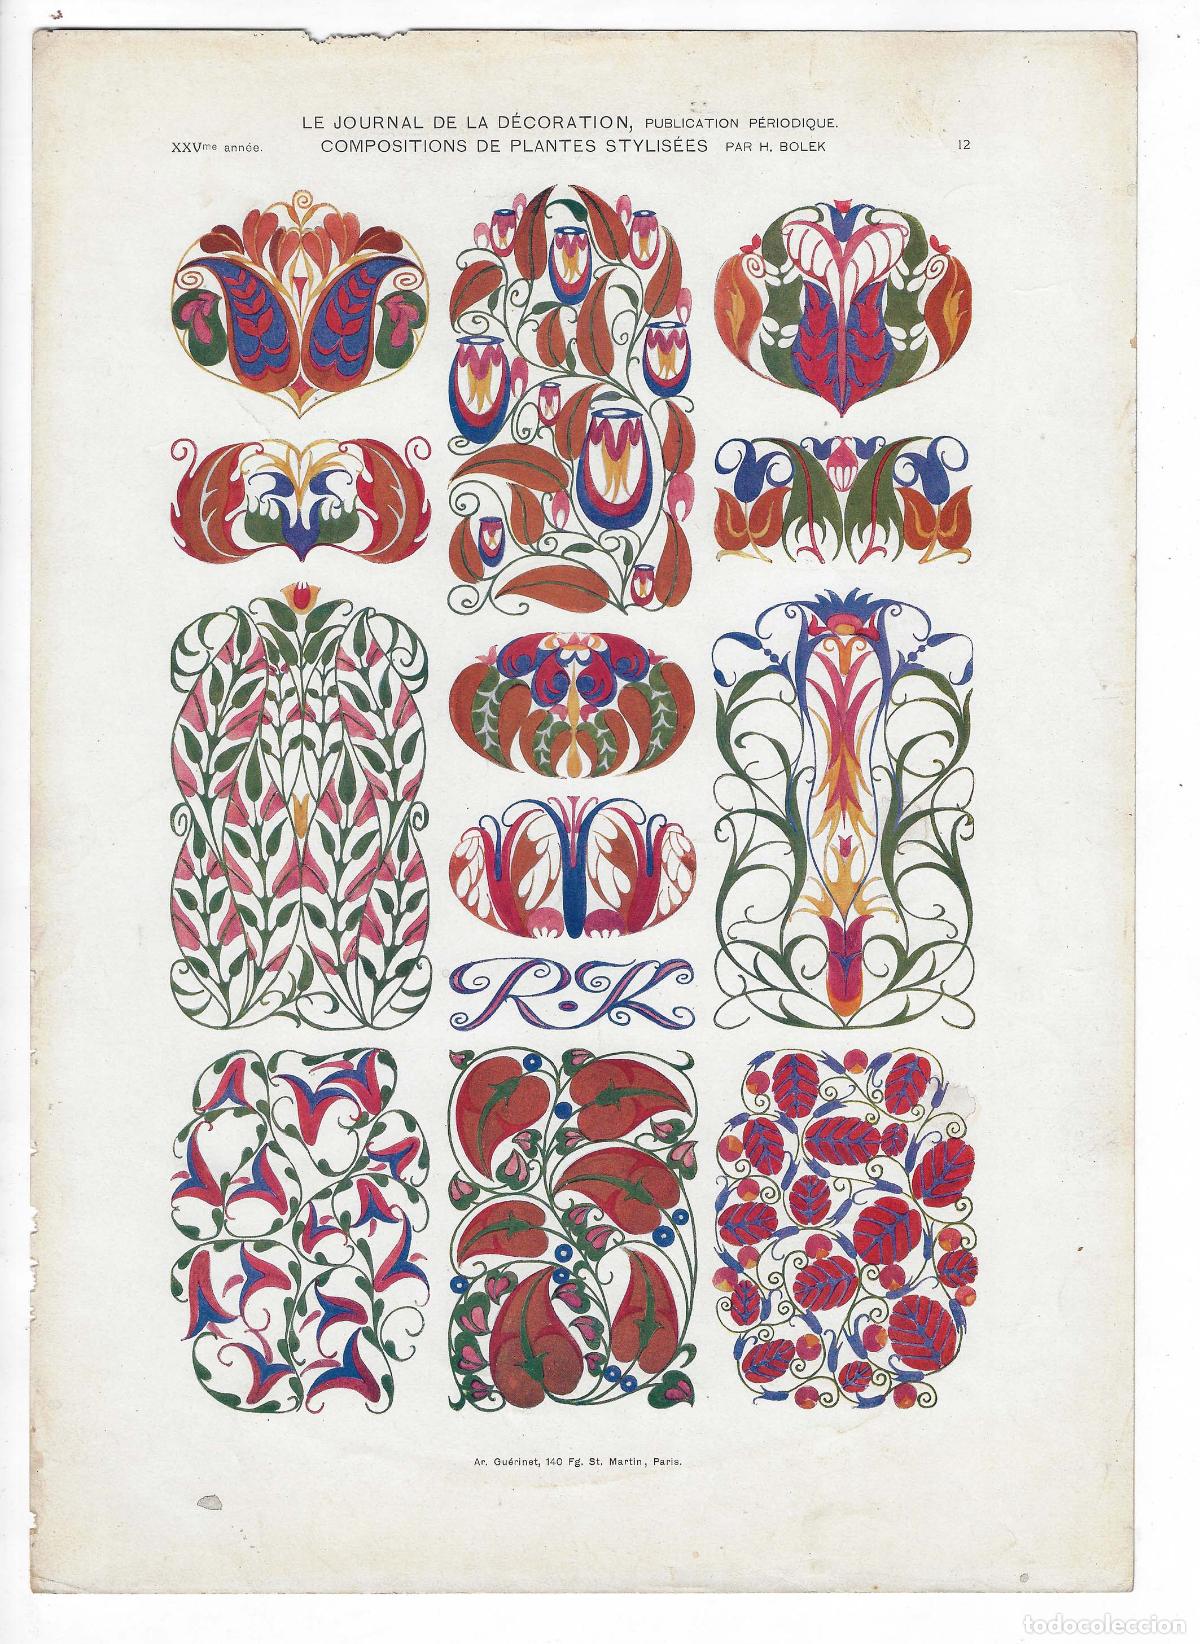 LE JOURNAL DE LA DÉCORATION, PUBLICATION PÉRIODIQUE.
XXVme année. COMPOSITIONS DE PLANTES STYLISÉES PAR H. BOLEK 12
R·K
Ar. Guérinet, 140 Fg. St. Martin, Paris.
todocoleccion